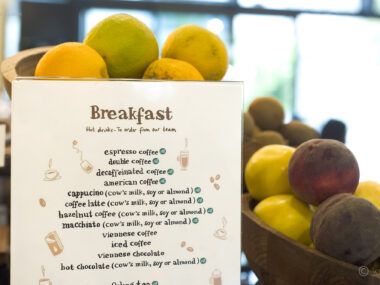 Breakfast
Hot drinks - To order from our team
espresso coffee
double coffee
decaffeinated coffee
american coffee
cappucino (cow's milk, soy or almond)
coffee latte (cow's milk, soy or almond)
hazelnut coffee (cow's milk, soy or almond)
macchiato (cow's milk, soy or almond)
viennese coffee
iced coffee
viennese chocolate
hot chocolate (cow's milk, soy or almond)